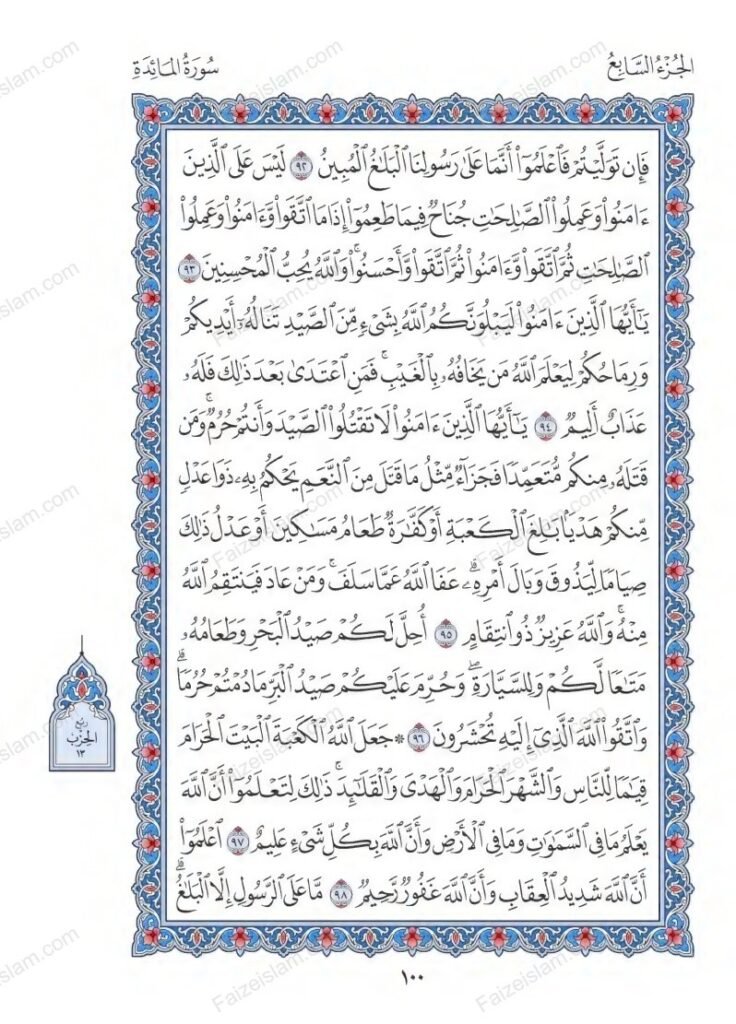 الجُزْءُ السَّابِعُ
سُورَةُ المَائِدَةِ
فَإِن تَوَلَّيْتُمْ فَٱعْلَمُوٓا۟ أَنَّمَا عَلَىٰ رَسُولِنَا ٱلْبَلَٰغُ ٱلْمُبِينُ ٩٢ لَيْسَ عَلَى ٱلَّذِينَ
ءَامَنُوا۟ وَعَمِلُوا۟ ٱلصَّٰلِحَٰتِ جُنَاحٌ فِيمَا طَعِمُوٓا۟ إِذَا مَا ٱتَّقَوا۟ وَّءَامَنُوا۟ وَعَمِلُوا۟
ٱلصَّٰلِحَٰتِ ثُمَّ ٱتَّقَوا۟ وَّءَامَنُوا۟ ثُمَّ ٱتَّقَوا۟ وَّأَحْسَنُوا۟ۚ وَٱللَّهُ يُحِبُّ ٱلْمُحْسِنِينَ ٩٣
يَٰٓأَيُّهَا ٱلَّذِينَ ءَامَنُوا۟ لَيَبْلُوَنَّكُمُ ٱللَّهُ بِشَىْءٍ مِّنَ ٱلصَّيْدِ تَنَالُهُۥٓ أَيْدِيكُمْ
وَرِمَاحُكُمْ لِيَعْلَمَ ٱللَّهُ مَن يَخَافُهُۥ بِٱلْغَيْبِۚ فَمَنِ ٱعْتَدَىٰ بَعْدَ ذَٰلِكَ فَلَهُۥ
عَذَابٌ أَلِيمٌ ٩٤ يَٰٓأَيُّهَا ٱلَّذِينَ ءَامَنُوا۟ لَا تَقْتُلُوا۟ ٱلصَّيْدَ وَأَنتُمْ حُرُمٌۚ وَمَن
قَتَلَهُۥ مِنكُم مُّتَعَمِّدًا فَجَزَآءٌ مِّثْلُ مَا قَتَلَ مِنَ ٱلنَّعَمِ يَحْكُمُ بِهِۦ ذَوَا عَدْلٍ
مِّنكُمْ هَدْيًۢا بَٰلِغَ ٱلْكَعْبَةِ أَوْ كَفَّٰرَةٌ طَعَامُ مَسَٰكِينَ أَوْ عَدْلُ ذَٰلِكَ
صِيَامًا لِّيَذُوقَ وَبَالَ أَمْرِهِۦۗ عَفَا ٱللَّهُ عَمَّا سَلَفَۚ وَمَنْ عَادَ فَيَنتَقِمُ ٱللَّهُ
مِنْهُۚ وَٱللَّهُ عَزِيزٌ ذُو ٱنتِقَامٍ ٩٥ أُحِلَّ لَكُمْ صَيْدُ ٱلْبَحْرِ وَطَعَامُهُۥ
مَتَٰعًا لَّكُمْ وَلِلسَّيَّارَةِۖ وَحُرِّمَ عَلَيْكُمْ صَيْدُ ٱلْبَرِّ مَا دُمْتُمْ حُرُمًاۗ
وَٱتَّقُوا۟ ٱللَّهَ ٱلَّذِىٓ إِلَيْهِ تُحْشَرُونَ ٩٦ ۞ جَعَلَ ٱللَّهُ ٱلْكَعْبَةَ ٱلْبَيْتَ ٱلْحَرَامَ
قِيَٰمًا لِّلنَّاسِ وَٱلشَّهْرَ ٱلْحَرَامَ وَٱلْهَدْىَ وَٱلْقَلَٰٓئِدَۚ ذَٰلِكَ لِتَعْلَمُوٓا۟ أَنَّ ٱللَّهَ
يَعْلَمُ مَا فِى ٱلسَّمَٰوَٰتِ وَمَا فِى ٱلْأَرْضِ وَأَنَّ ٱللَّهَ بِكُلِّ شَىْءٍ عَلِيمٌ ٩٧ ٱعْلَمُوٓا۟
أَنَّ ٱللَّهَ شَدِيدُ ٱلْعِقَابِ وَأَنَّ ٱللَّهَ غَفُورٌ رَّحِيمٌ ٩٨ مَّا عَلَى ٱلرَّسُولِ إِلَّا ٱلْبَلَٰغُۗ
ربع
الحزب
١٣
١٠٠
Faizeislam.com